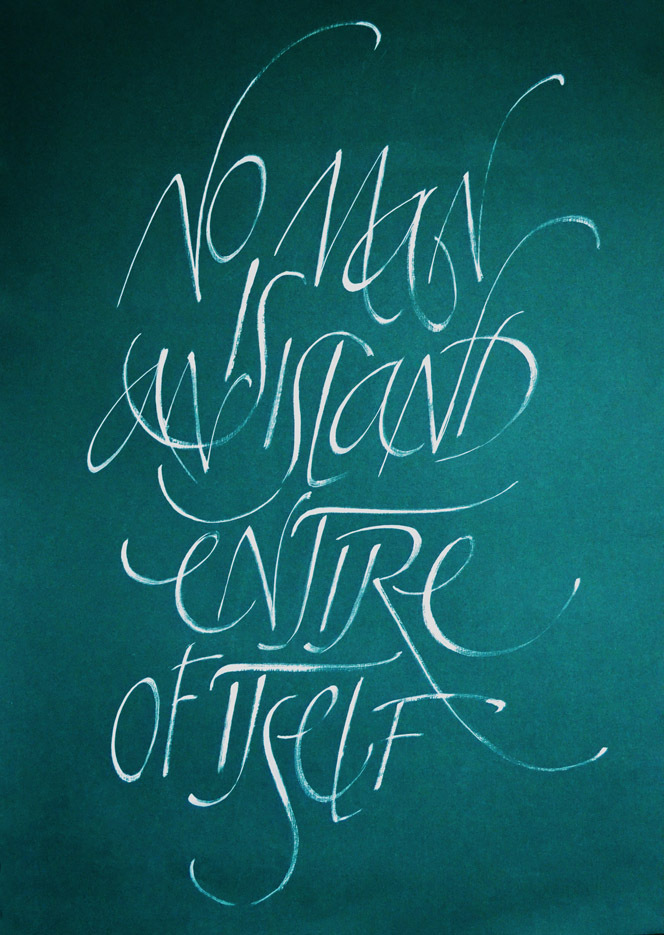 NO MAN
IS
AN ISLAND
ENTIRE
OF ITSELF